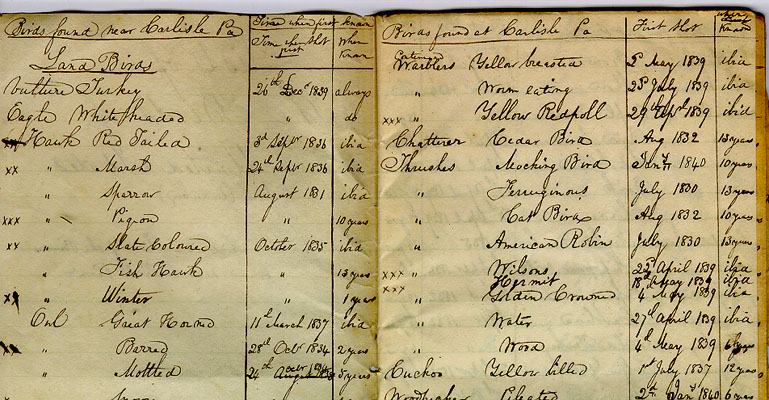 Birds found near Carlisle Pa Time when first known
Time when shot first When Known
Land Birds
Vulture Turkey 26th Decr 1839 always
Eagle White headed " do
Hawk Red Tailed 3d Sepr 1836 ibid
xx " Marsh 24th Sepr 1836 ibid
" Sparrow August 1831 ibid
xxx " Pigeon " 10 years
xx " Slate Coloured October 1835 ibid
" Fish Hawk " 13 years
xx " Winter " 1 year
Owl Great Horned 11th March 1837 ibid
" Barred 28th Octr 1834 2 years
" Mottled 24th 5 years
Birds found at Carlisle Pa First Shot when first Known
Warblers Yellow breasted 3d May 1839 ibid
" Worm eating 25th July 1839 ibid
xxx " Yellow Redpoll 29th Sepr 1839 ibid
Chatterer Cedar Bird Aug 1832 13 years
Thrushes Mocking Bird 1840 10 years
" Ferruginous July 1830 13 years
" Cat Bird Aug 1832 10 years
" American Robin July 1830 13 years
xxx " Wilsons 23d April 1839 ibid
xxx Hermit 18th May 1839 ibid
" Golden Crowned 4 May 1839 ibid
" Water 27th April 1839 ibid
" Wood 4th May 1839 6 years
Cuckoo Yellow billed 1st July 1837 12 years
Woodpecker Pileated 2d Jany 1840 6 years